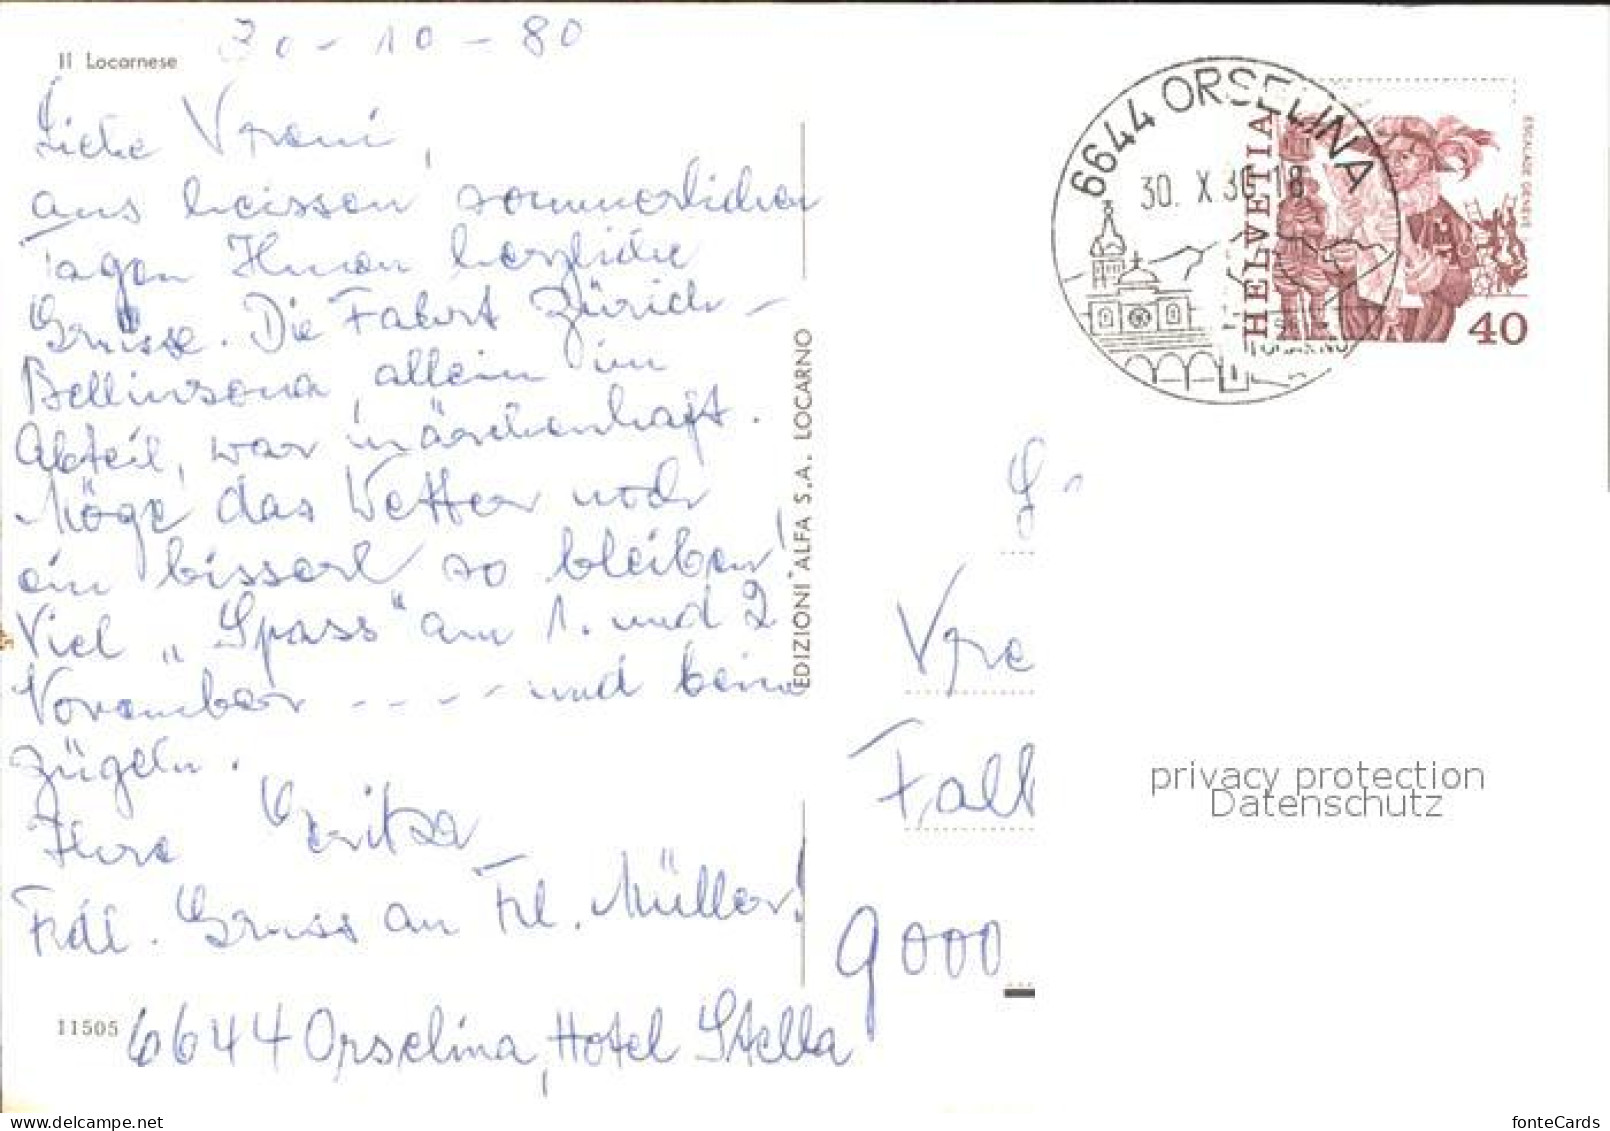 Il Locarnese
30-10-80
Liebe Vreni,
aus heissen sommerlichen
Tagen Ihnen herzliche
Grüsse. Die Fahrt Zürich-
Bellinzona, allein im
Abteil, war märchenhaft.
Möge das Wetter noch
ein bisserl so bleiben!
Viel „Spass“ am 1. und 2
November ---- und beim
zügeln.
Ihre
Frdl. Gruss an Frl. Müller!
11505
6644 Orselina, Hotel Stella
EDIZIONI ALFA S.A. LOCARNO
6644 ORSELINA
30. X. 18
HELVETIA
ESCALADE GENEVE
40
Vre
Falk
9000
privacy protection
Datenschutz
fonteCards